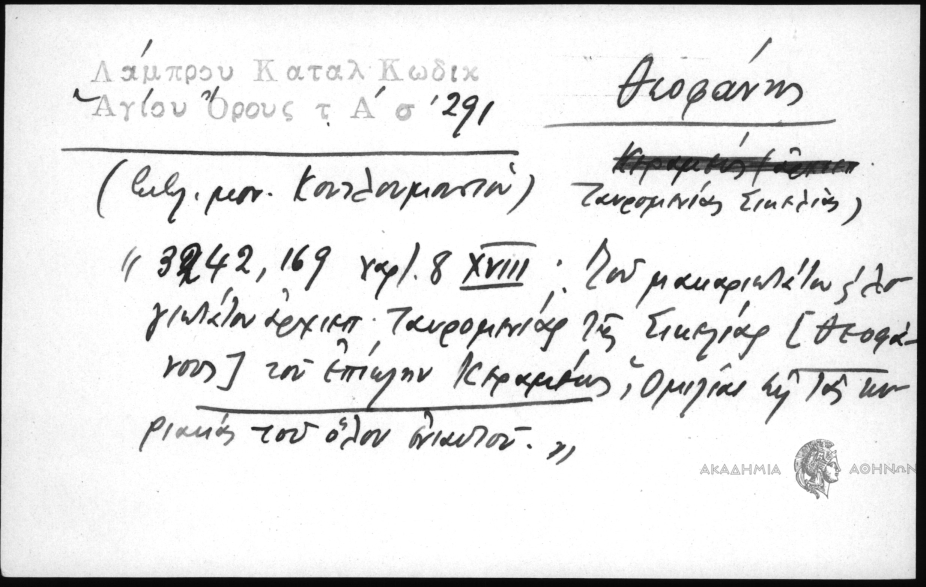 Λάμπρου Καταλ Κωδικ
Ἁγίου Ὄρους τ Α΄ σ 291
Θεοφάνης
Κεραμεύς (ἀρχιεπ.
Ταυρομενίας Σικελίας)
(Βιβλ. μον. Κουτλουμουσίου)
" 3242, 169 χαρτ. 8 XVIII : Τοῦ μακαριωτάτου ς λο
γιωτάτου ἀρχιεπ. Ταυρομενίας τῆς Σικελίας [Θεοφά-
νους] τοῦ ἐπίκλην Κεραμέως, Ὁμιλίαι εἰς τὰς κυ
ριακὰς τοῦ ὅλου ἐνιαυτοῦ. "
ΑΚΑΔΗΜΙΑ ΑΘΗΝΩΝ